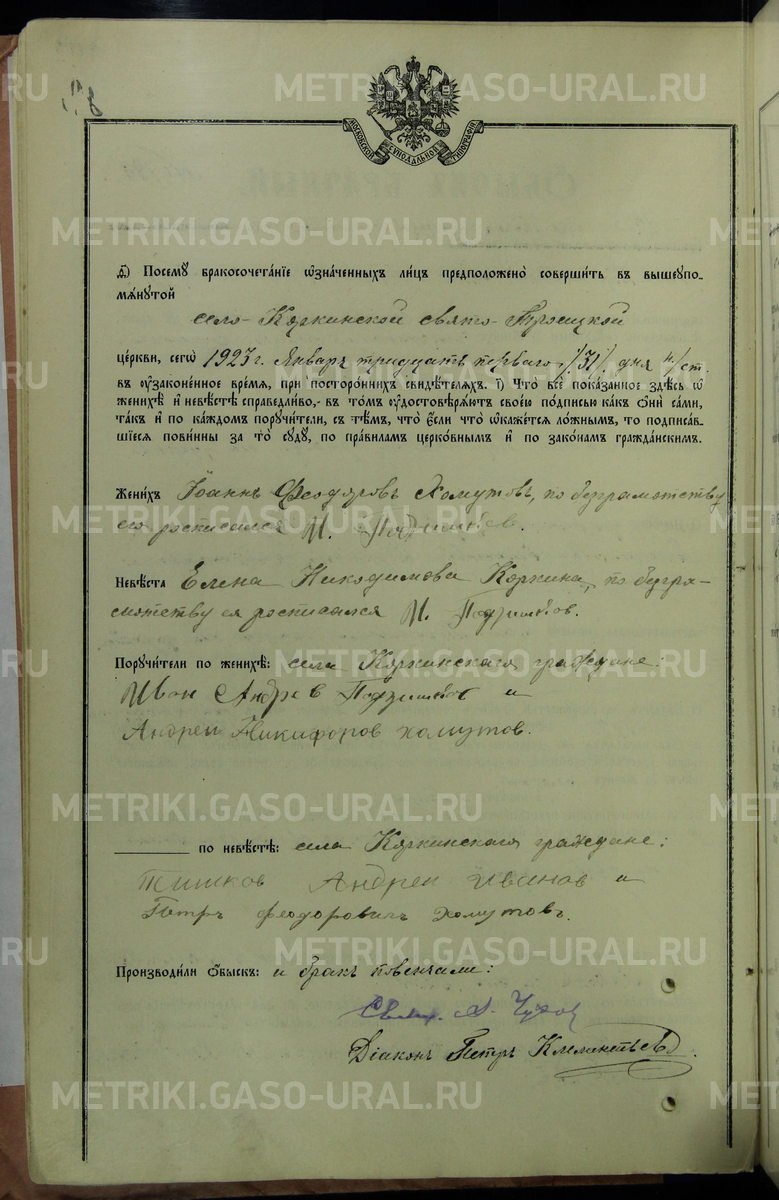 МОСКОВСКОЙ СѴНОДАЛЬНОЙ ТИПОГРАФІИ
Ѳ) Посемꙋ̀ бракосочета́ніе ѡ҆зна́ченныхъ ли́цъ предположено̀ соверши́ть въ вышеꙋпо-
мѧ́нꙋтой
село-Коркинской свято-Троицкой
це́ркви, сегѡ̀ 1923 г. Январь тридцать первого /31/ дня н/ст.
въ ᲂу҆зако́ненное вре́мѧ, при посторо́ннихъ свидѣ́телѧхъ. І) Что̀ всѐ пока́занное здѣ́сь ѡ҆
женихѣ̀ и҆ невѣ́стѣ справедли́во,- въ то́мъ ᲂу҆достовѣрѧ́ютъ свое́ю по́дписью ка́къ ѻ҆нѝ са́ми,
та́къ и҆ по ка́ждомъ порꙋчи́тели, съ тѣ́мъ, что̀ є҆́сли что̀ ѡ҆ка́жетсѧ ло́жнымъ, то подписа́в-
шіесѧ пови́нны за то̀ сꙋдꙋ̀, по пра́виламъ церко́внымъ и҆ по зако́намъ гражда́нскимъ.
Жени́хъ Іоаннъ Феодоровъ Хомутовъ, по безграмотству
его росписался И.
Невѣ́ста Елена Никодимова Коркина, по безгра-
мотству ея росписался И.
Порꙋчи́тели по женихѣ̀: села Коркинскаго граждане:
Иван и
Андреи Никифоров хомутов.
по невѣ́стѣ: села Коркинскаго граждане:
Тишков Андреи Иванов и
Петръ феодоровичъ хомутовъ.
Производи́ли ѻ҆́быскъ: и бракъ повенчали:
Свящ.
Діаконъ Петръ Климентьевъ
METRIKI.GASO-URAL.RU